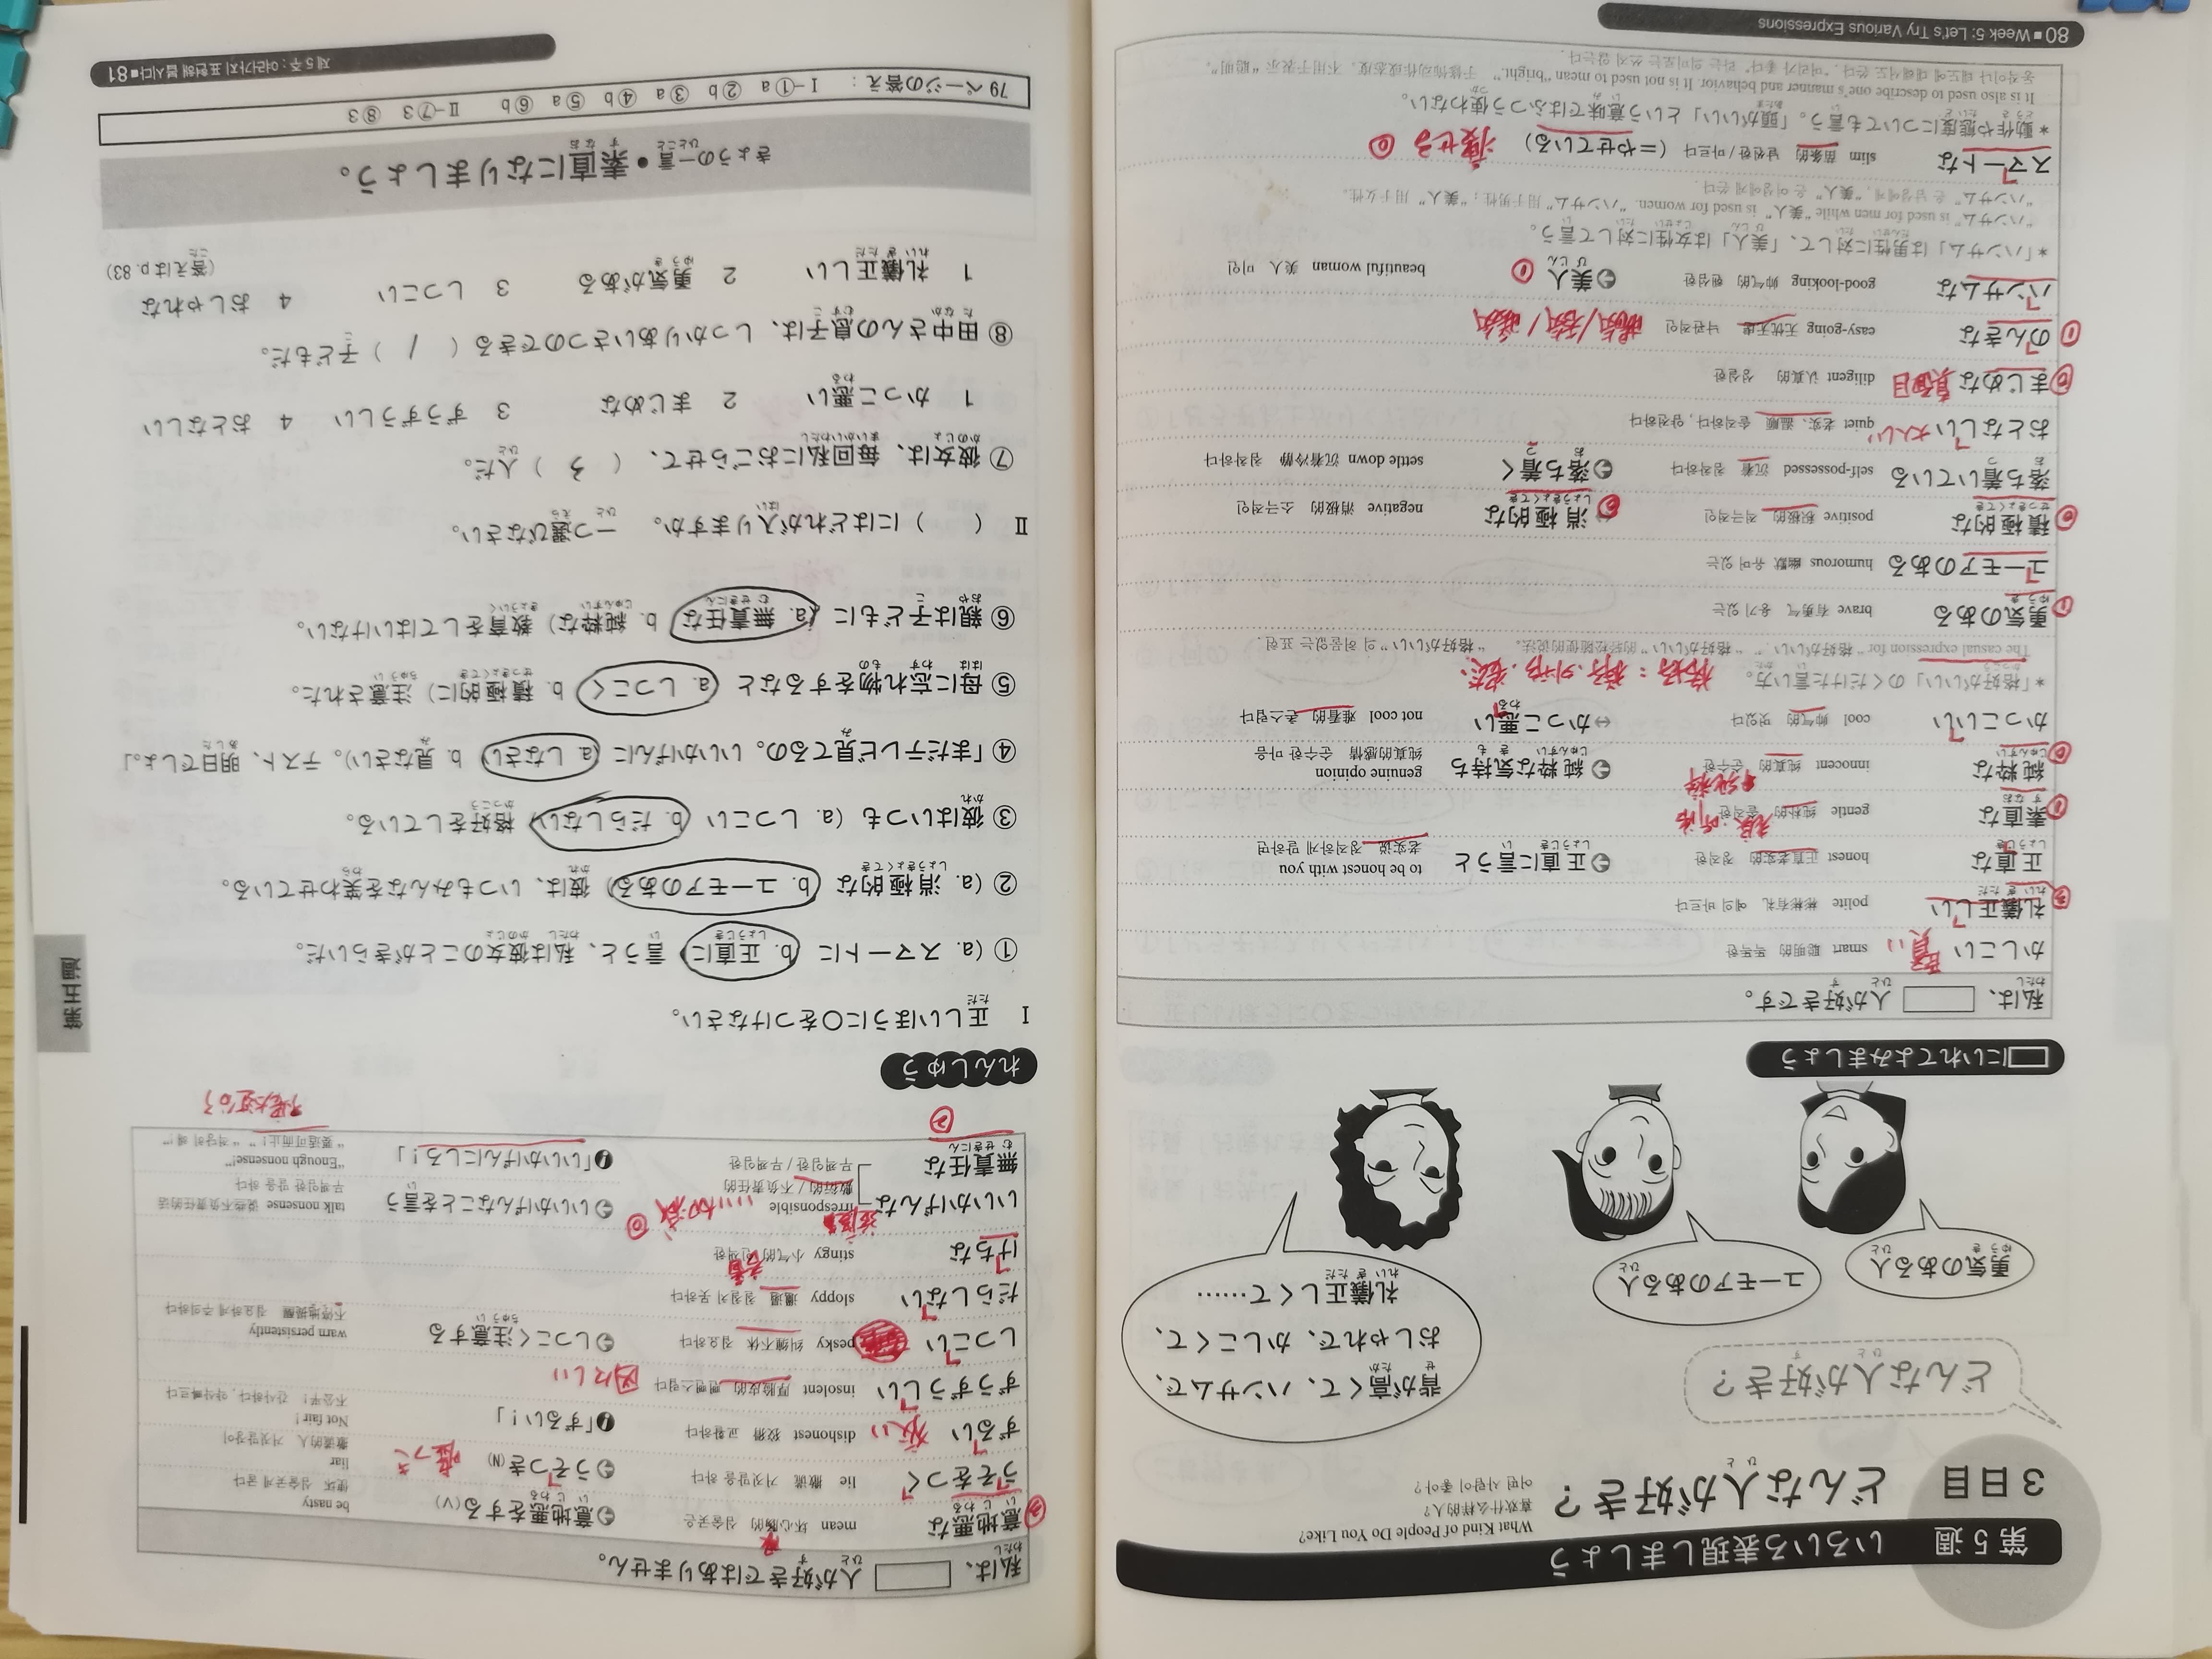 第5週 いろいろ表現しましょう
3日目 どんな人が好き?
What Kind of People Do You Like?
喜欢什么样的人?
어떤 사람이 좋아?
どんな人が好き?
勇気のある人
ユーモアのある人
背が高くて、ハンサムで、
おしゃれで、かしこくて、
礼儀正しくて……
□にいれてよみましょう
私は、□人が好きです。
かしこい 賢い smart 聪明的 똑똑한
礼儀正しい polite 彬彬有礼 예의 바르다
正直な honest 正直老实的 정직한 正直に言うと to be honest with you 老实说 정직하게 말하면
素直な gentle 纯朴的 솔직한
純粋な innocent 纯真的 순수한 純粋な気持ち genuine opinion 纯真的感情 순수한 마음
かっこいい cool 帅气的 멋있다 ⇔かっこ悪い not cool 难看的 촌스럽다
*「格好がいい」のくだけた言い方。
The casual expression for “格好がいい”. “格好がいい”的轻松随便的说法。 “格好がいい”의 허물없는 표현.
勇気のある brave 有勇气 용기 있는
ユーモアのある humorous 幽默 유머 있는
積極的な positive 积极的 적극적인 ⇔消極的な negative 消极的 소극적인
落ち着いている self-possessed 沉着 침착하다 落ち着く settle down 沉着冷静 침착하다
おとなしい 大人しい quiet 老实、温顺 온순하다, 얌전하다
まじめな 真面目 diligent 认真的 성실한
のんきな easy-going 无忧无虑 낙관적인
ハンサムな good-looking 帅气的 핸섬한 美人 beautiful woman 美人 미인
*「ハンサム」は男性に対して、「美人」は女性に対して言う。
“ハンサム” is used for men while “美人” is used for women. “ハンサム”用于男性;“美人”用于女性。
“ハンサム”은 남성에게, “美人”은 여성에게 쓴다.
スマートな slim 苗条的 날씬한/마르다 (=やせている) 痩せる
*動作や態度についても言う。「頭がいい」という意味ではふつう使わない。
It is also used to describe one's manner and behavior. It is not used to mean “bright.” 于修饰动作或态度。不用于表示“聪明”。
동작이나 태도에 대해서도 쓴다. “머리가 좋다”라는 의미로는 쓰지 않는다.
80■Week 5: Let's Try Various Expressions
私は、□人が好きではありません。
意地悪な mean 坏心肠的 심술궂은 意地悪をする(V) be nasty 使坏 심술궂게 굴다
うそをつく lie 撒谎 거짓말을 하다 うそつき(N) 嘘つき liar 撒谎的人 거짓말쟁이
ずるい 狡い dishonest 狡猾 교활하다 「ずるい!」 Not fair! 不公平! 간사하다, 약삭빠르다
ずうずうしい insolent 厚脸皮的 뻔뻔스럽다 図々しい
しつこい pesky 纠缠不休 집요하다 しつこく注意する warn persistently 不停地提醒 집요하게 주의하다
だらしない sloppy 邋遢 칠칠치 못하다
けちな stingy 小气的 인색한
いいかげんな irresponsible 敷衍的/不负责任的 いい加減 いいかげんなことを言う talk nonsense 说些不负责任的话 무책임한 말을 하다
無責任な 무책임한/무책임한 「いいかげんにしろ!」 “Enough nonsense!” “要适可而止!” “적당히 해!”
れんしゅう
I 正しいほうに○をつけなさい。
①(a. スマートに b. 正直に)言うと、私は彼女のことがきらいだ。
②(a. 消極的な b. ユーモアのある)彼は、いつもみんなを笑わせている。
③彼はいつも(a. しつこい b. だらしない)格好をしている。
④「まだテレビ見てるの。いいかげんに(a しなさい b 見なさい)。テスト、明日でしょ。」
⑤母に忘れ物をするなと(a. しつこく b. 積極的に)注意された。
⑥親は子どもに(a. 無責任な b. 純粋な)教育をしてはいけない。
II ( )にはどれが入りますか。一つ選びなさい。
⑦彼女は、毎回私におごらせて、( 3 )人だ。
1 かっこ悪い 2 まじめな 3 ずうずうしい 4 おとなしい
⑧田中さんの息子は、しっかりあいさつのできる( 1 )子どもだ。
1 礼儀正しい 2 勇気がある 3 しつこい 4 おしゃれな
(答えはp. 83)
きょうの一言●素直になりましょう。
79ページの答え: I-①a ②b ③a ④b ⑤a ⑥b II-⑦3 ⑧3
제5주: 여러가지 표현해 봅시다■81
第五週